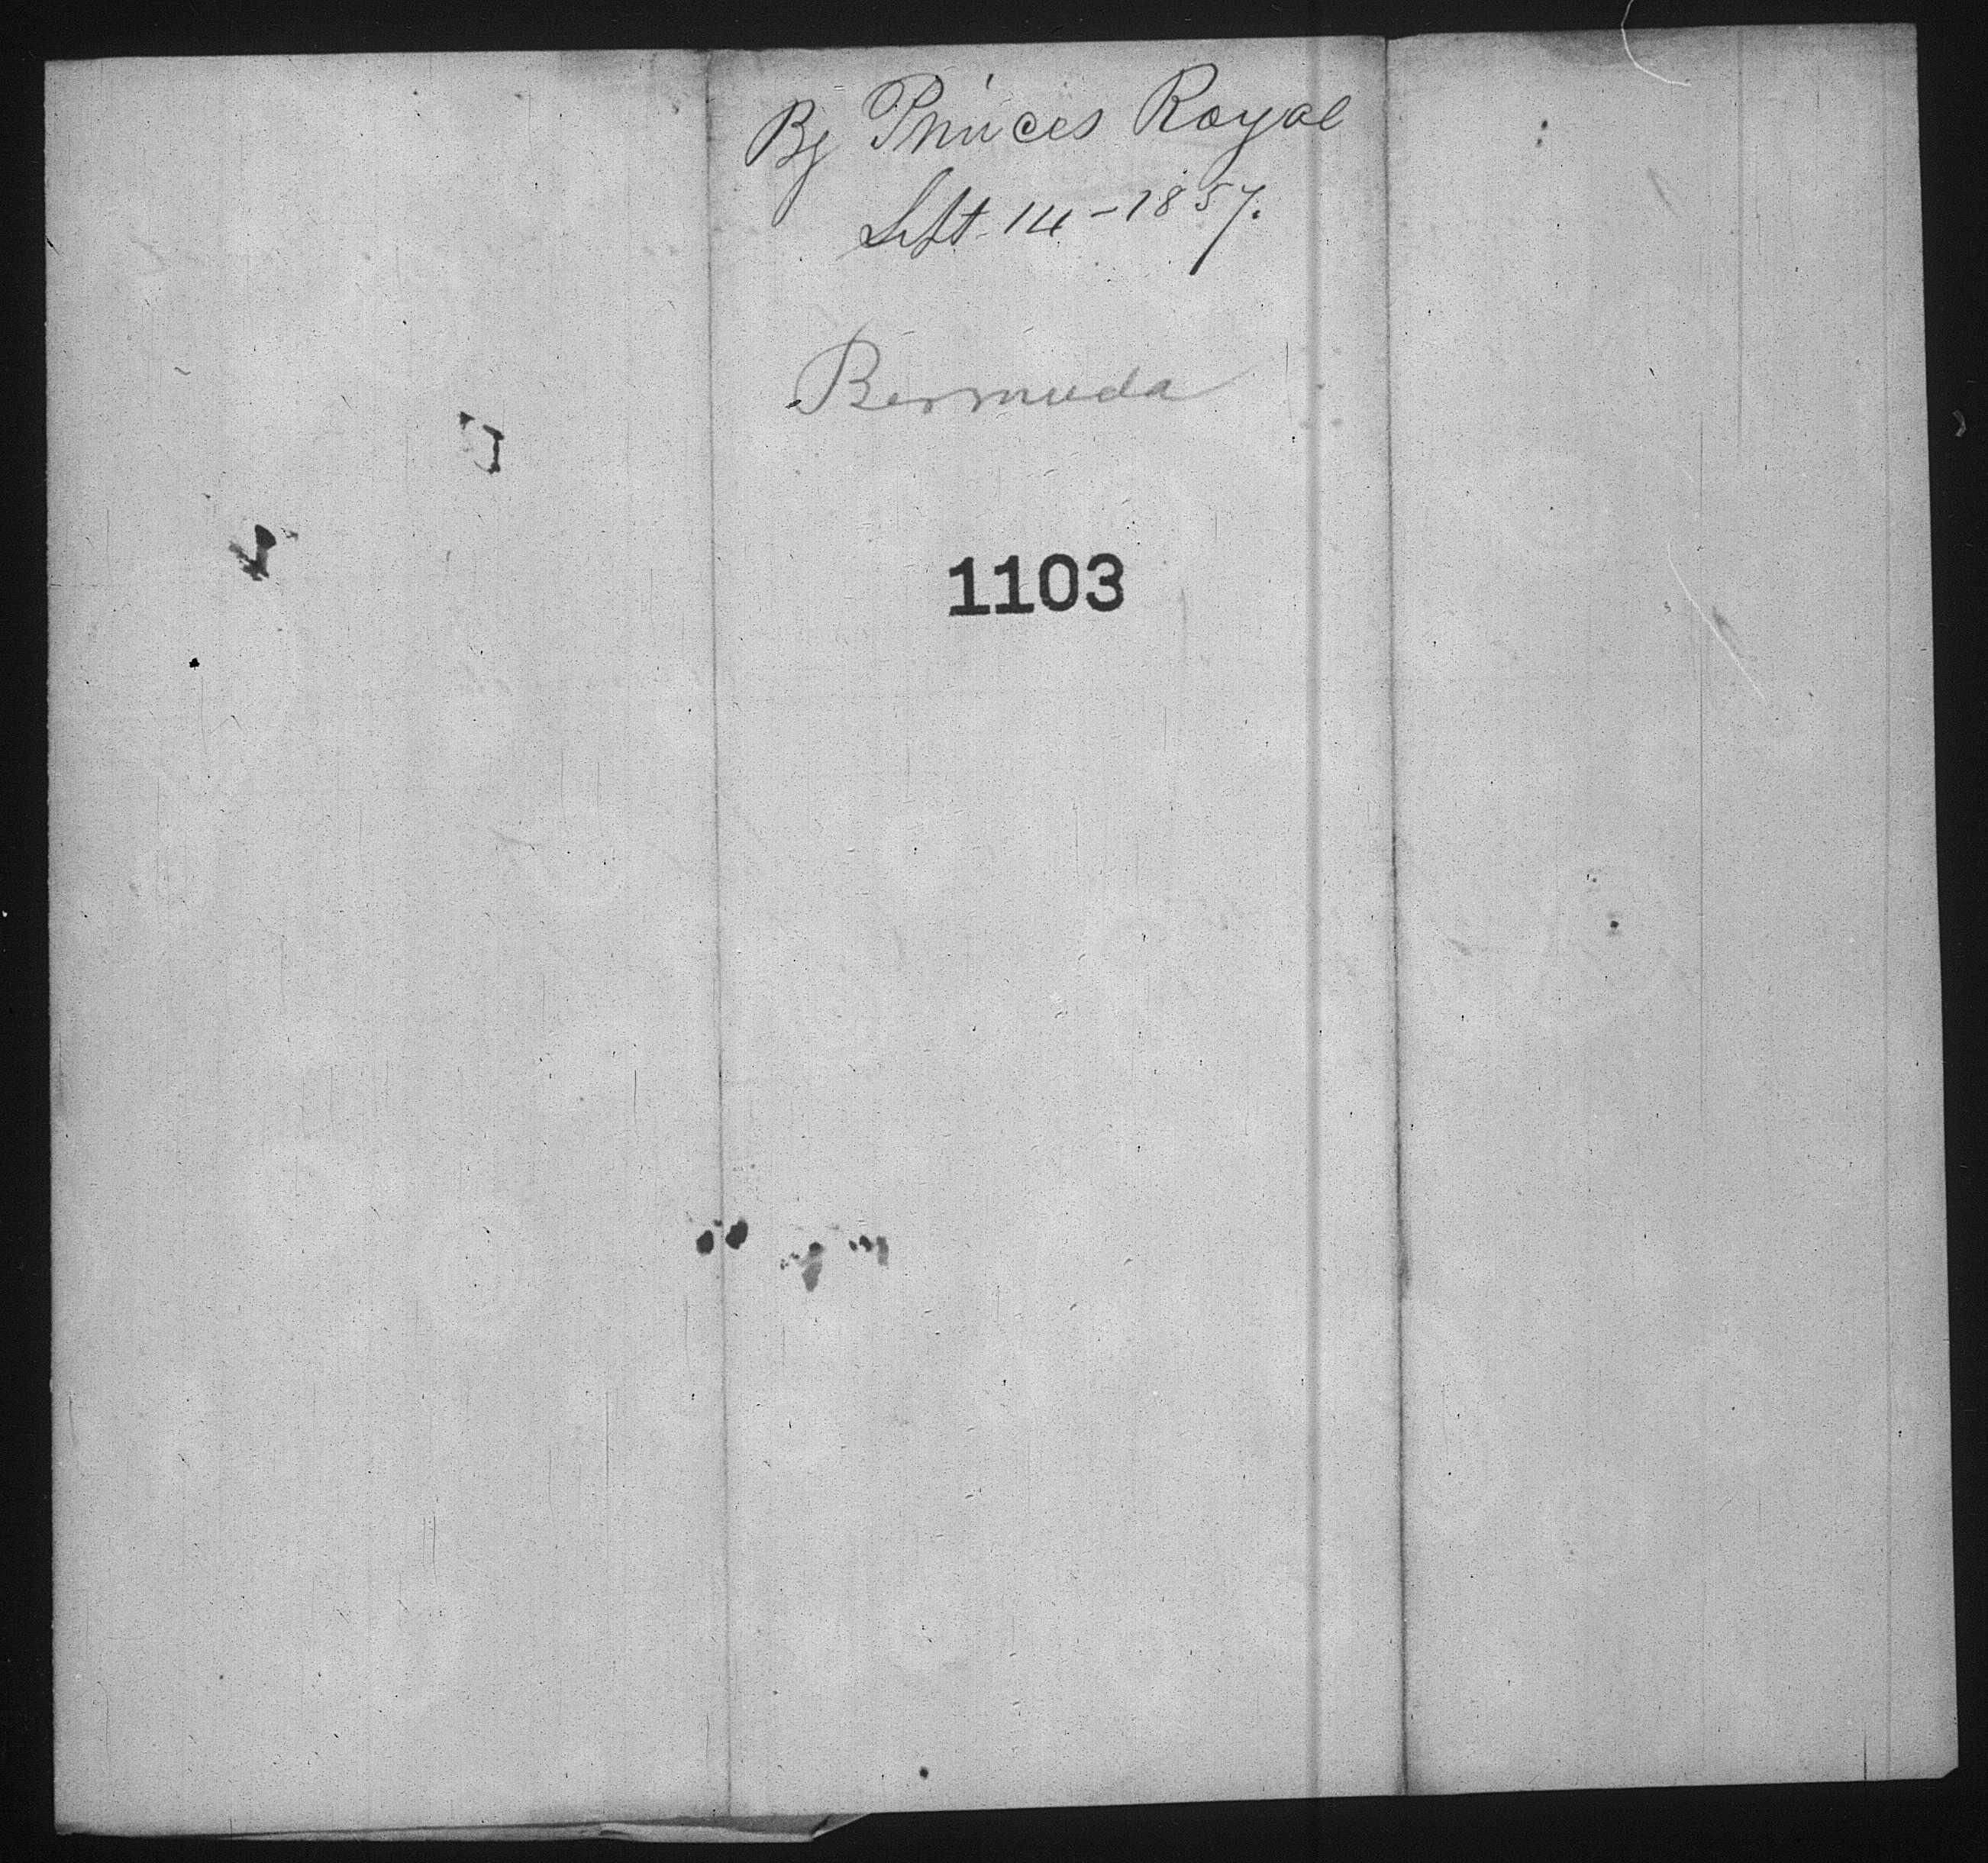 Bg Princes Royal
Sept. 14 - 1857.
Bermuda
1103